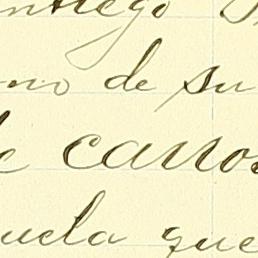 ntiego
no de su
de carros
uela que